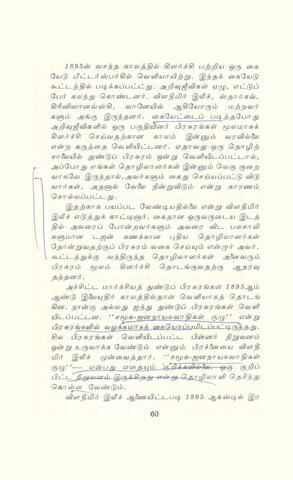 1895ன் வசந்த காலத்தில் கிளர்ச்சி பற்றிய ஒரு கை
யேடு பீட்டர்ஸ்பர்கில் வெளியாயிற்று. இந்தக் கையேடு
கூட்டத்தில் படிக்கப்பட்டது. அறிவுஜீவிகள் ஏழு, எட்டுப்
பேர் கலந்து கொண்டனர். விளதிமிர் இலீச், ஸ்தார்கவ்,
கிரிஸிஸானவ்ஸ்கி, வானேயிவ் ஆகியோரும் மற்றவர்
களும் அங்கு இருந்தனர். கையேட்டைப் படித்தபோது
அறிவுஜீவிகளில் ஒரு பகுதியினர் பிரசுரங்கள் மூலமாகக்
கிளர்ச்சி செய்வதற்கான காலம் இன்னும் வரவில்லை
என்ற கருத்தை வெளியிட்டனர். ஏதாவது ஒரு தொழிற்
சாலையில் துண்டுப் பிரசுரம் ஒன்று வெளியிடப்பட்டால்,
அப்போது எங்கள் தொழிலாளர்கள் இன்னும் வெகு குறை
வாகவே இருந்தால், அவர்களும் கைது செய்யப்பட்டு விடு
வார்கள், அதனால் வேலை நின்றுவிடும் என்று காரணம்
சொல்லப்பட்டது.
இதற்காக பயப்பட வேண்டியதில்லை என்று விளதிமிர்
இலீச் எடுத்துக் காட்டினார். கைதான ஒருவருடைய இடத்
தில் அவரைப் போன்றவர்களும் அவரை விட பலசாலி
களுமான டஜன் கணக்கான புதிய தொழிலாளர்கள்
தோன்றுவதற்குப் பிரசுரம் வகை செய்யும் என்றார் அவர்.
கூட்டத்துக்கு வந்திருந்த தொழிலாளர்கள் அனைவரும்
பிரசுரம் மூலம் கிளர்ச்சி தொடங்குவதற்கு ஆதரவு
தந்தனர்.
அச்சிட்ட மார்க்சியத் துண்டுப் பிரசுரங்கள் 1895ஆம்
ஆண்டு இலையுதிர் காலத்தில்தான் வெளியாகத் தொடங்
கின. நான்கு அல்லது ஐந்து துண்டுப் பிரசுரங்கள் வெளி
யிடப்பட்டன. "சமூக-ஜனநாயகவாதிகள் குழு" என்று
பிரசுரங்களில் வழக்கமாகக் கையொப்பமிடப்பட்டிருந்தது.
சில பிரசுரங்கள் வெளியிடப்பட்ட பின்னர் நிறுவனம்
ஒன்று உருவாக்க வேண்டும் என்னும் பிரச்னையை விளதி
மிர் இலீச் முன்வைத்தார். "சமூக-ஜனநாயகவாதிகள்
குழு"— என்பது எதையும் குறிக்கவில்லை. ஒரு குறிப்
பிட்ட நிறுவனம் இருக்கிறது என்று தொழிலாளி தெரிந்து
கொள்ள வேண்டும்.
விளதிமிர் இலீச் ஆணையிட்டபடி 1895 ஆகஸ்டில் இர
60